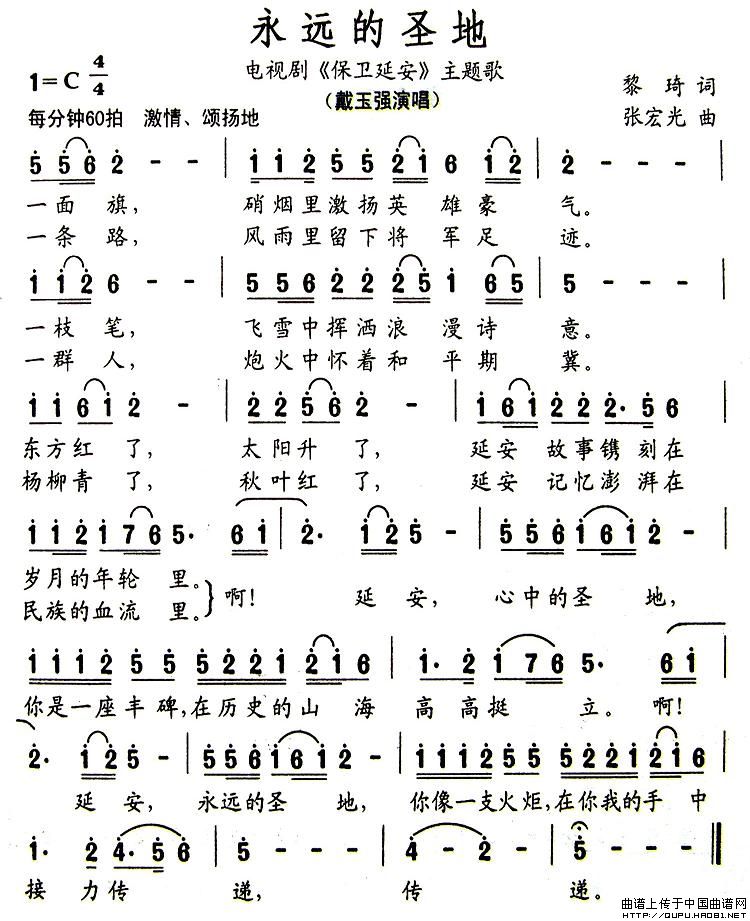 永远的圣地
1=C 4/4
电视剧《保卫延安》主题歌
黎琦 词
(戴玉强演唱)
每分钟60拍 激情、颂扬地
张宏光 曲
5 5 6 2 - - | 1 1 2 5 5 2 1 6 1 2 | 2 - -
一面旗, 硝烟里激扬英雄豪气。
一条路, 风雨里留下将军足迹。
1 1 2 6 - - | 5 5 6 2 2 2 5 1 6 5 | 5 - - |
一枝笔, 飞雪中挥洒浪漫诗意。
一群人, 炮火中怀着和平期冀。
1 1 6 1 2 - | 2 2 5 6 2 - | 1 6 1 2 2 2· 5 6
东方红了, 太阳升了, 延安故事镌刻在
杨柳青了, 秋叶红了, 延安记忆澎湃在
1 1 2 1 7 6 5· 6 1 | 2· 1 2 5 - | 5 5 6 1 6 1 2 -
岁月的年轮里。 啊! 延安, 心中的圣地,
民族的血流里。
1 1 1 2 5 5 5 2 2 1 2 1 6 | 1· 2 1 7 6 5· 6 1 |
你是一座丰碑,在历史的山海高高挺立。啊!
2· 1 2 5 - | 5 5 6 1 6 1 2 - | 1 1 1 2 5 5 5 2 2 1 2 1 6 |
延安, 永远的圣地, 你像一支火炬,在你我的手中
1· 2 4· 5 6 | 5 - - | 4 - 2 - | 5 - - ‖
接力传递, 传递。
曲谱上传于中国曲谱网
HTTP://QUPU.HAO81.NET